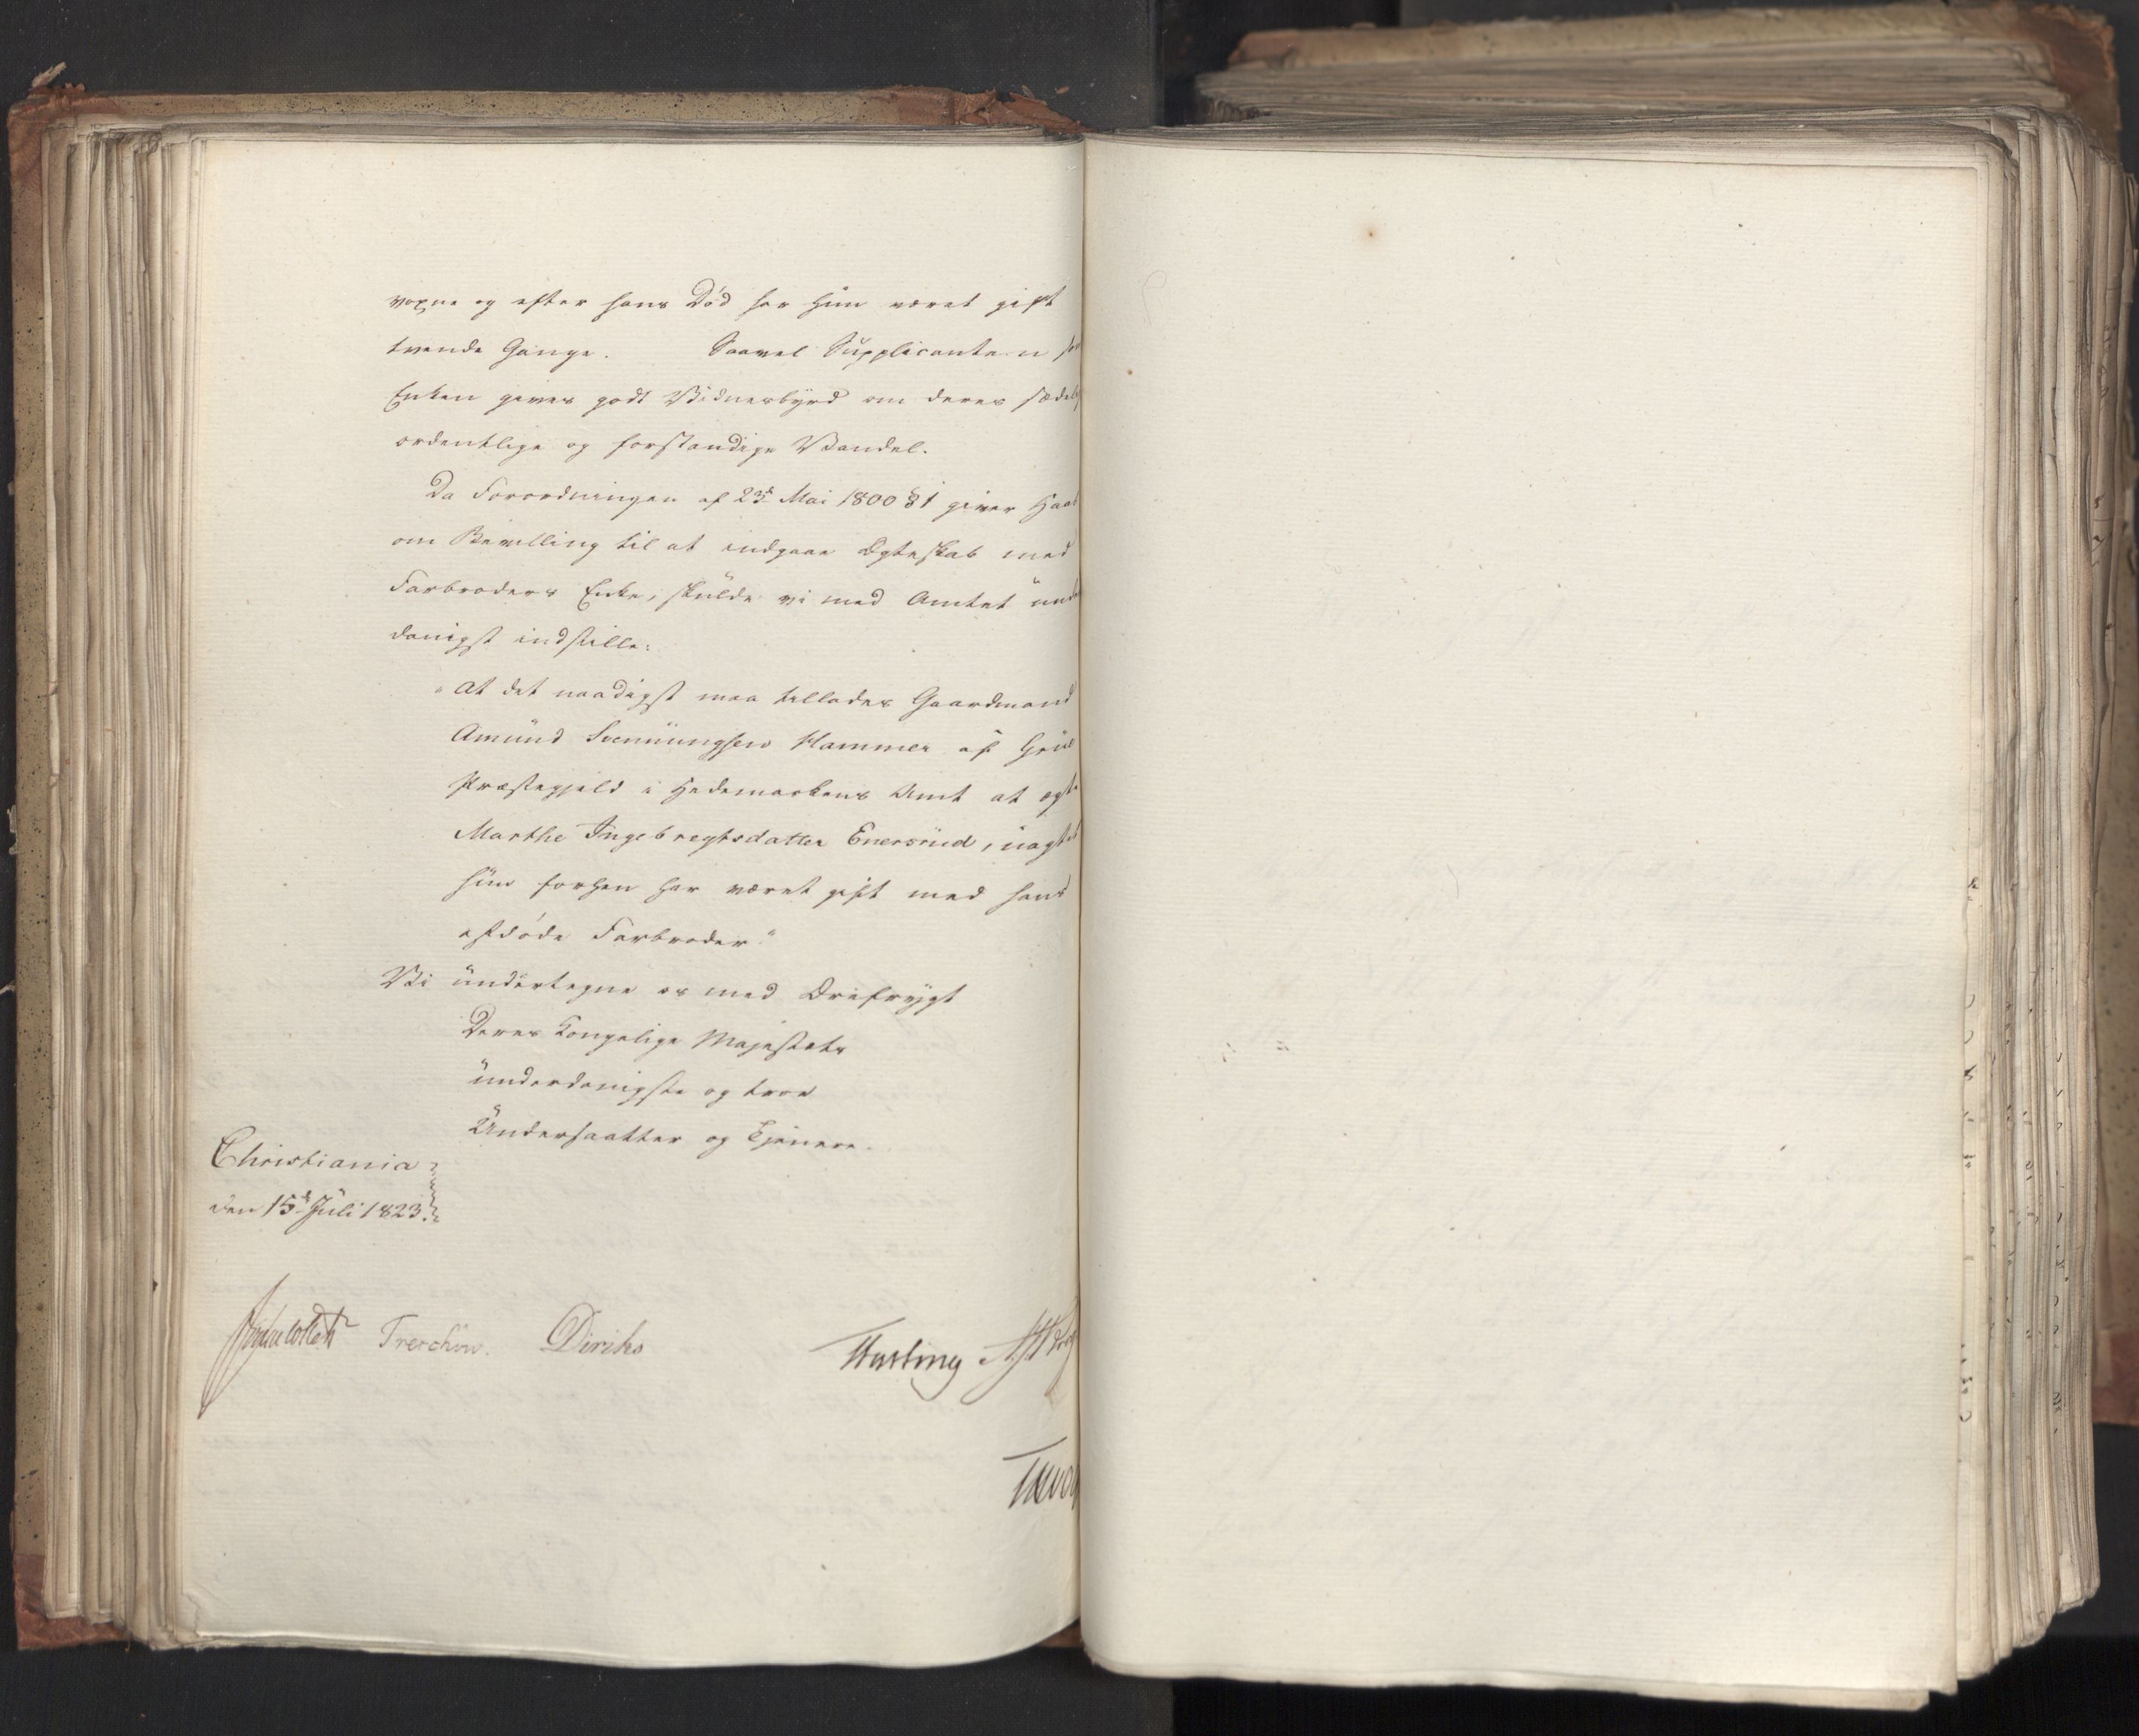 voxne og efter hans Død har hun været gift
tvende Gange. Saavel Supplicanten som
Enken gives godt Vidnesbyrd om deres sædelige
ordentlige og forstandige Vandel.
Da Forordningen af 23d Mai 1800 § 1 giver Haab
om Bevilling til at indgaae Ægteskab med
Farbroders Enke, skulde vi med Amtet under
danigst indstille:
"At det naadigst maa tillades Gaardmand
Amund Svennungsen Hammer af Grue
Præstegjeld i Hedemarkens Amt at ægte
Marthe Ingebregtsdatter Enersrud, uagtet
hun forhen har været gift med hans
afdøde Farbroder"
Vi undertegne os med Ærefrygt
Deres Kongelige Majestets
underdanigste og troe
Undersaatter og Tjenere.
Christiania
den 15d Juli 1823.
Treschow. Diriks